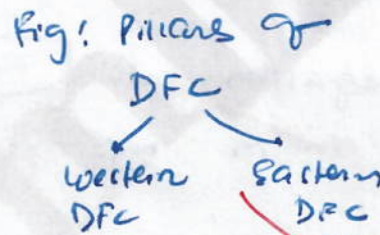 Fig: Pillars of
DFC
Western Eastern
DFC DFC